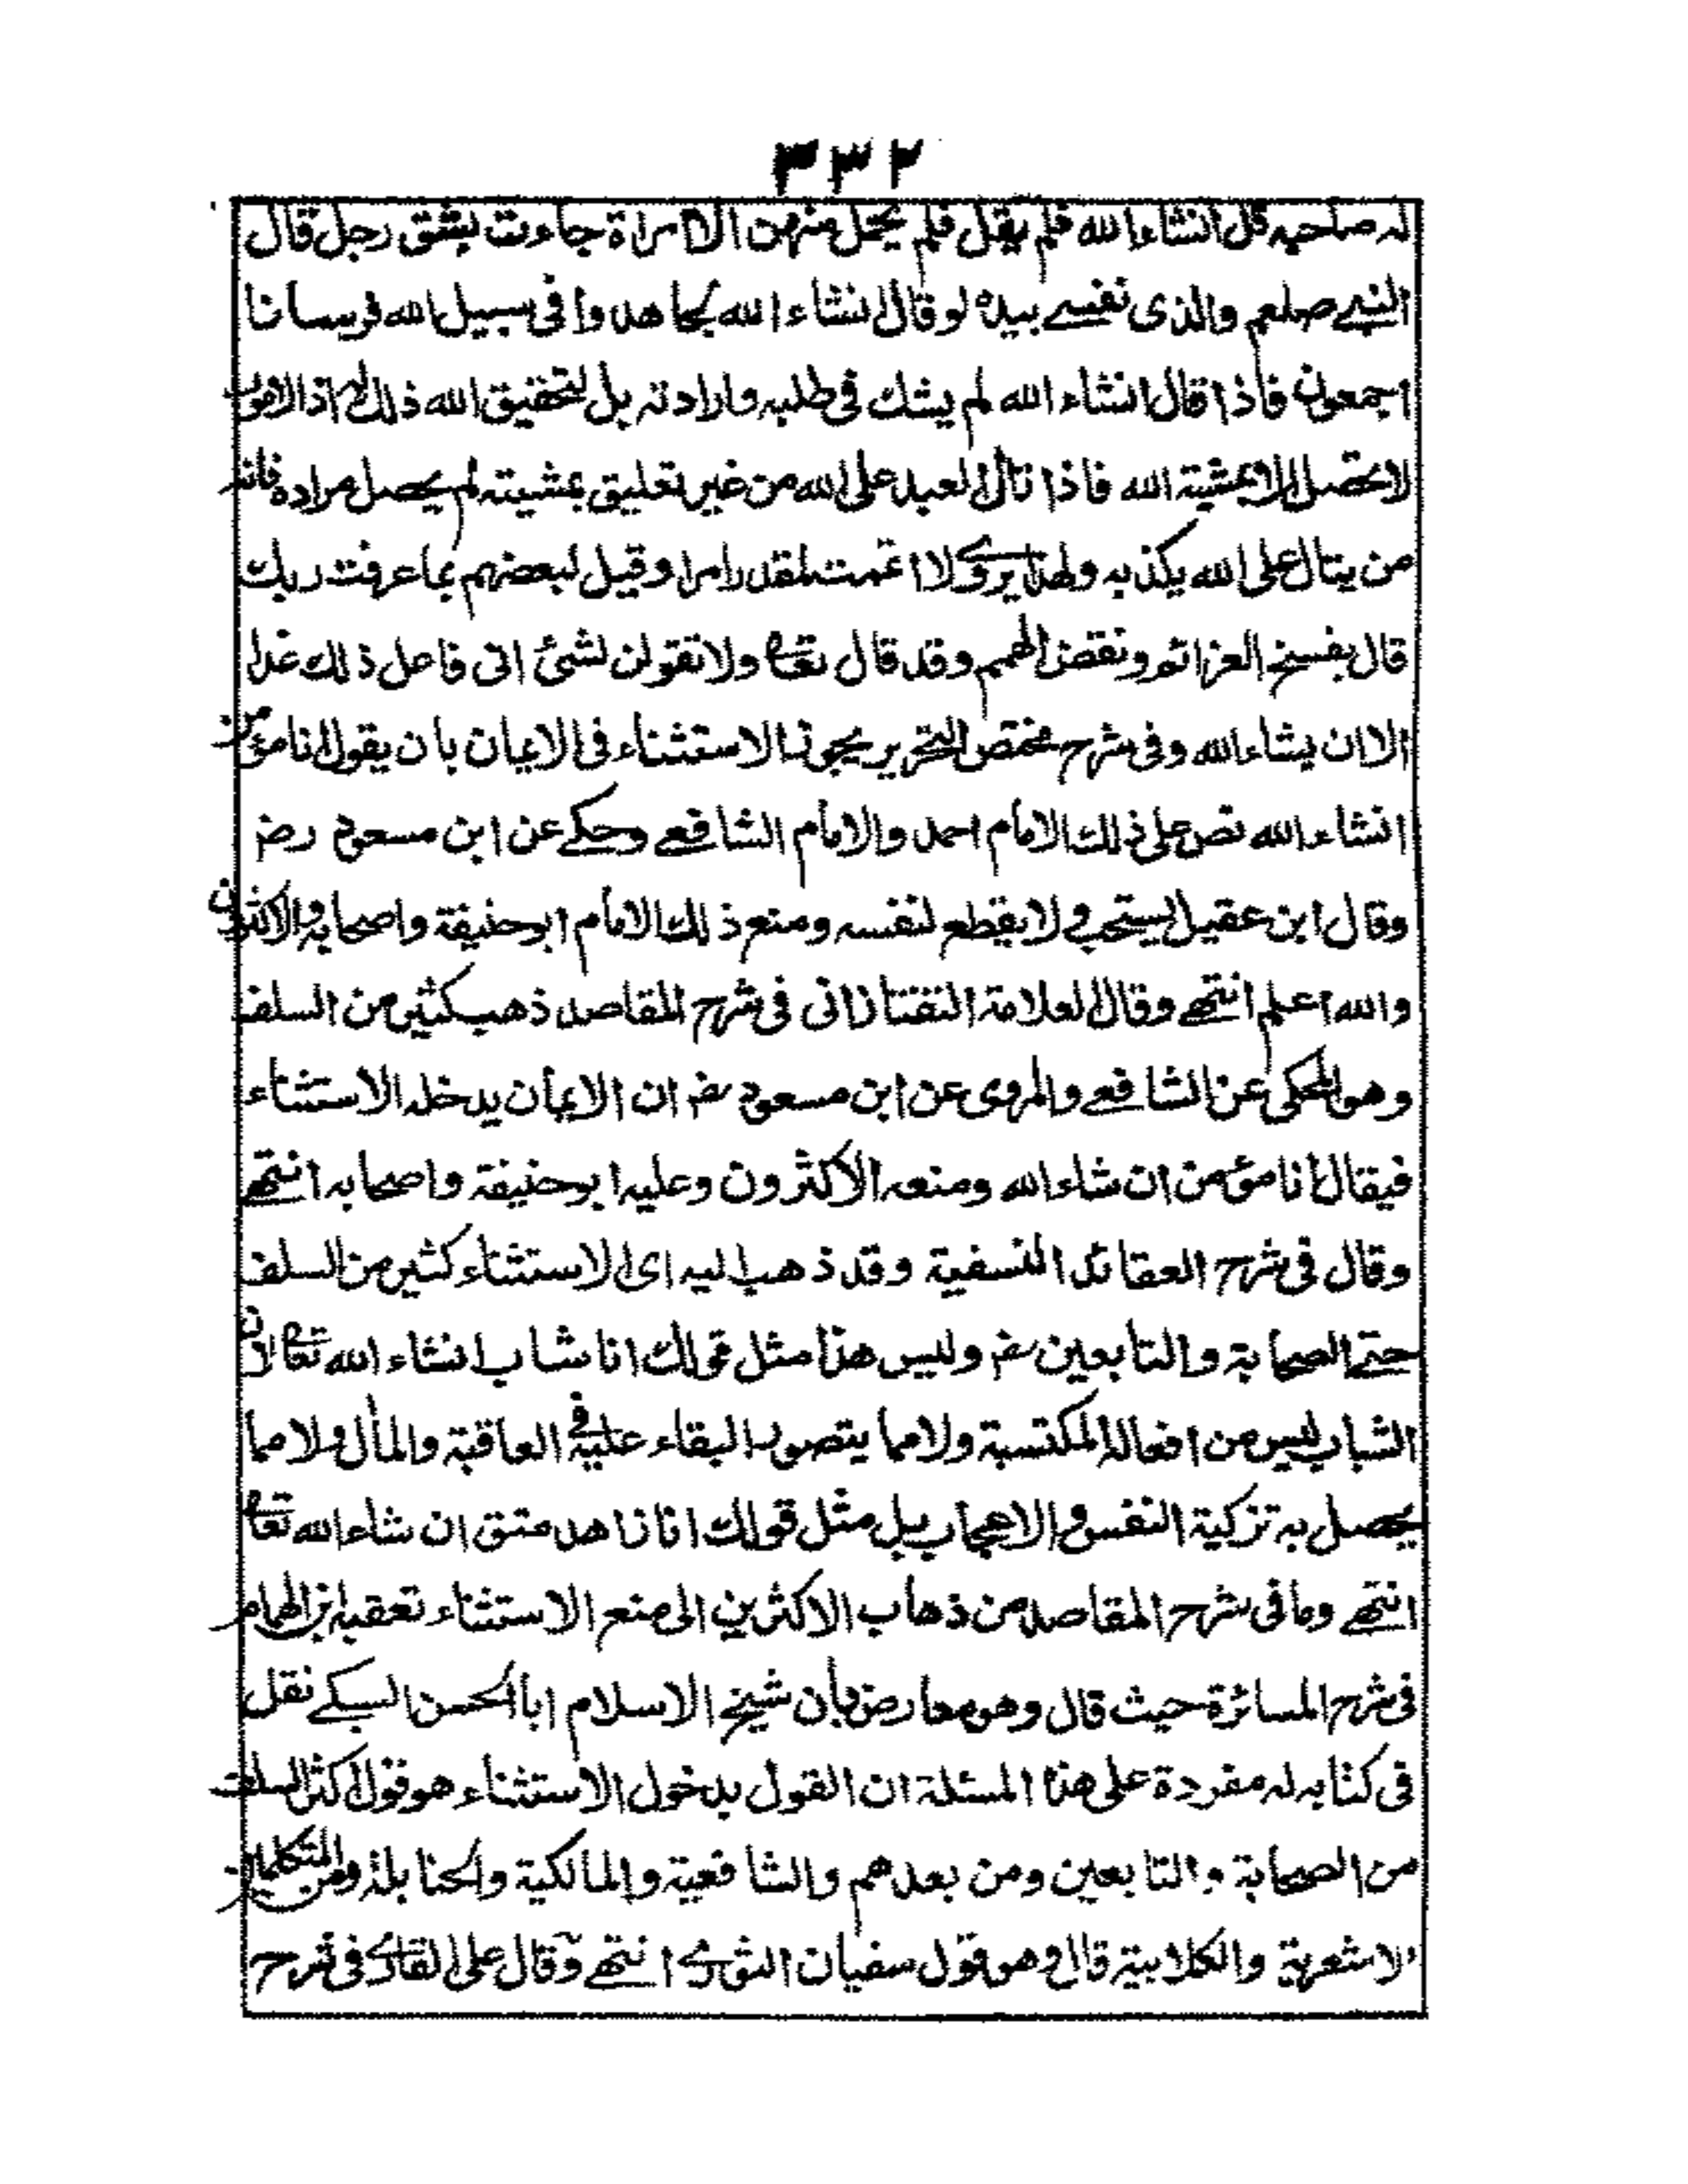 ٣٣٢
له صاحبه قل انشاء الله فلم يقل فلم يحمل منهن الا امراة جاءت بشق رجل قال
النبي صلعم والذى نفسي بيده لو قال انشاء الله لجاهدوا فى سبيل الله فرسانا
اجمعون فاذا قال انشاء الله لم يشك فى طلبه وارادته بل لتحقيق الله ذلك له اذ الامور
لا تحصل الا بمشيتة الله فاذا تألى العبد على الله من غير تعليق بمشيته لم يحصل مراده فانه
من يتال على الله يكذبه ولهذا يروى لا اتممت لمقدر امرا وقيل لبعضهم بما عرفت ربك
قال بفسخ العزائم ونقض الهمم وقد قال تعالى ولا تقولن لشئ انى فاعل ذلك غدا
الا ان يشاء الله وفى شرح مختصر التحرير يجوز الاستثناء فى الايمان بان يقول انا مؤمن
انشاء الله نص على ذلك الامام احمد والامام الشافعي وحكي عن ابن مسعود رض
وقال ابن عقيل يستحب ولا يقطع لنفسه ومنع ذلك الامام ابو حنيفة واصحابه والاكثرون
والله اعلم انتهى وقال العلامة التفتازانى فى شرح المقاصد ذهب كثير من السلف
وهو المحكى عن الشافعي والمروى عن ابن مسعود رض ان الايمان يدخله الاستثناء
فيقال انا مؤمن ان شاء الله ومنعه الاكثرون وعليه ابو حنيفة واصحابه انتهى
وقال فى شرح العقائد النسفية وقد ذهب اليه اى الاستثناء كثير من السلف
حتى الصحابة والتابعين رض وليس هذا مثل قولك انا شاب انشاء الله تعالى لان
الشباب ليس من افعاله المكتسبة ولا مما يتصور البقاء عليه فى العاقبة والمأل ولا مما
يحصل به تزكية النفس والاعجاب بل مثل قولك انا زاهد متق ان شاء الله تعالى
انتهى وما فى شرح المقاصد من ذهاب الاكثرين الى منع الاستثناء تعقبه ابن الهمام
فى شرح المسائرة حيث قال وهو معارض بأن شيخ الاسلام ابا الحسن السبكي نقل
فى كتابه له مفردة على هذا المسئلة ان القول بدخول الاستثناء هو قول اكثر السلف
من الصحابة والتابعين ومن بعدهم والشافعية والمالكية والحنابلة ومن المتكلمين
الاشعرية والكلابية قال وهو قول سفيان الثورى انتهى وقال على القارى فى شرح